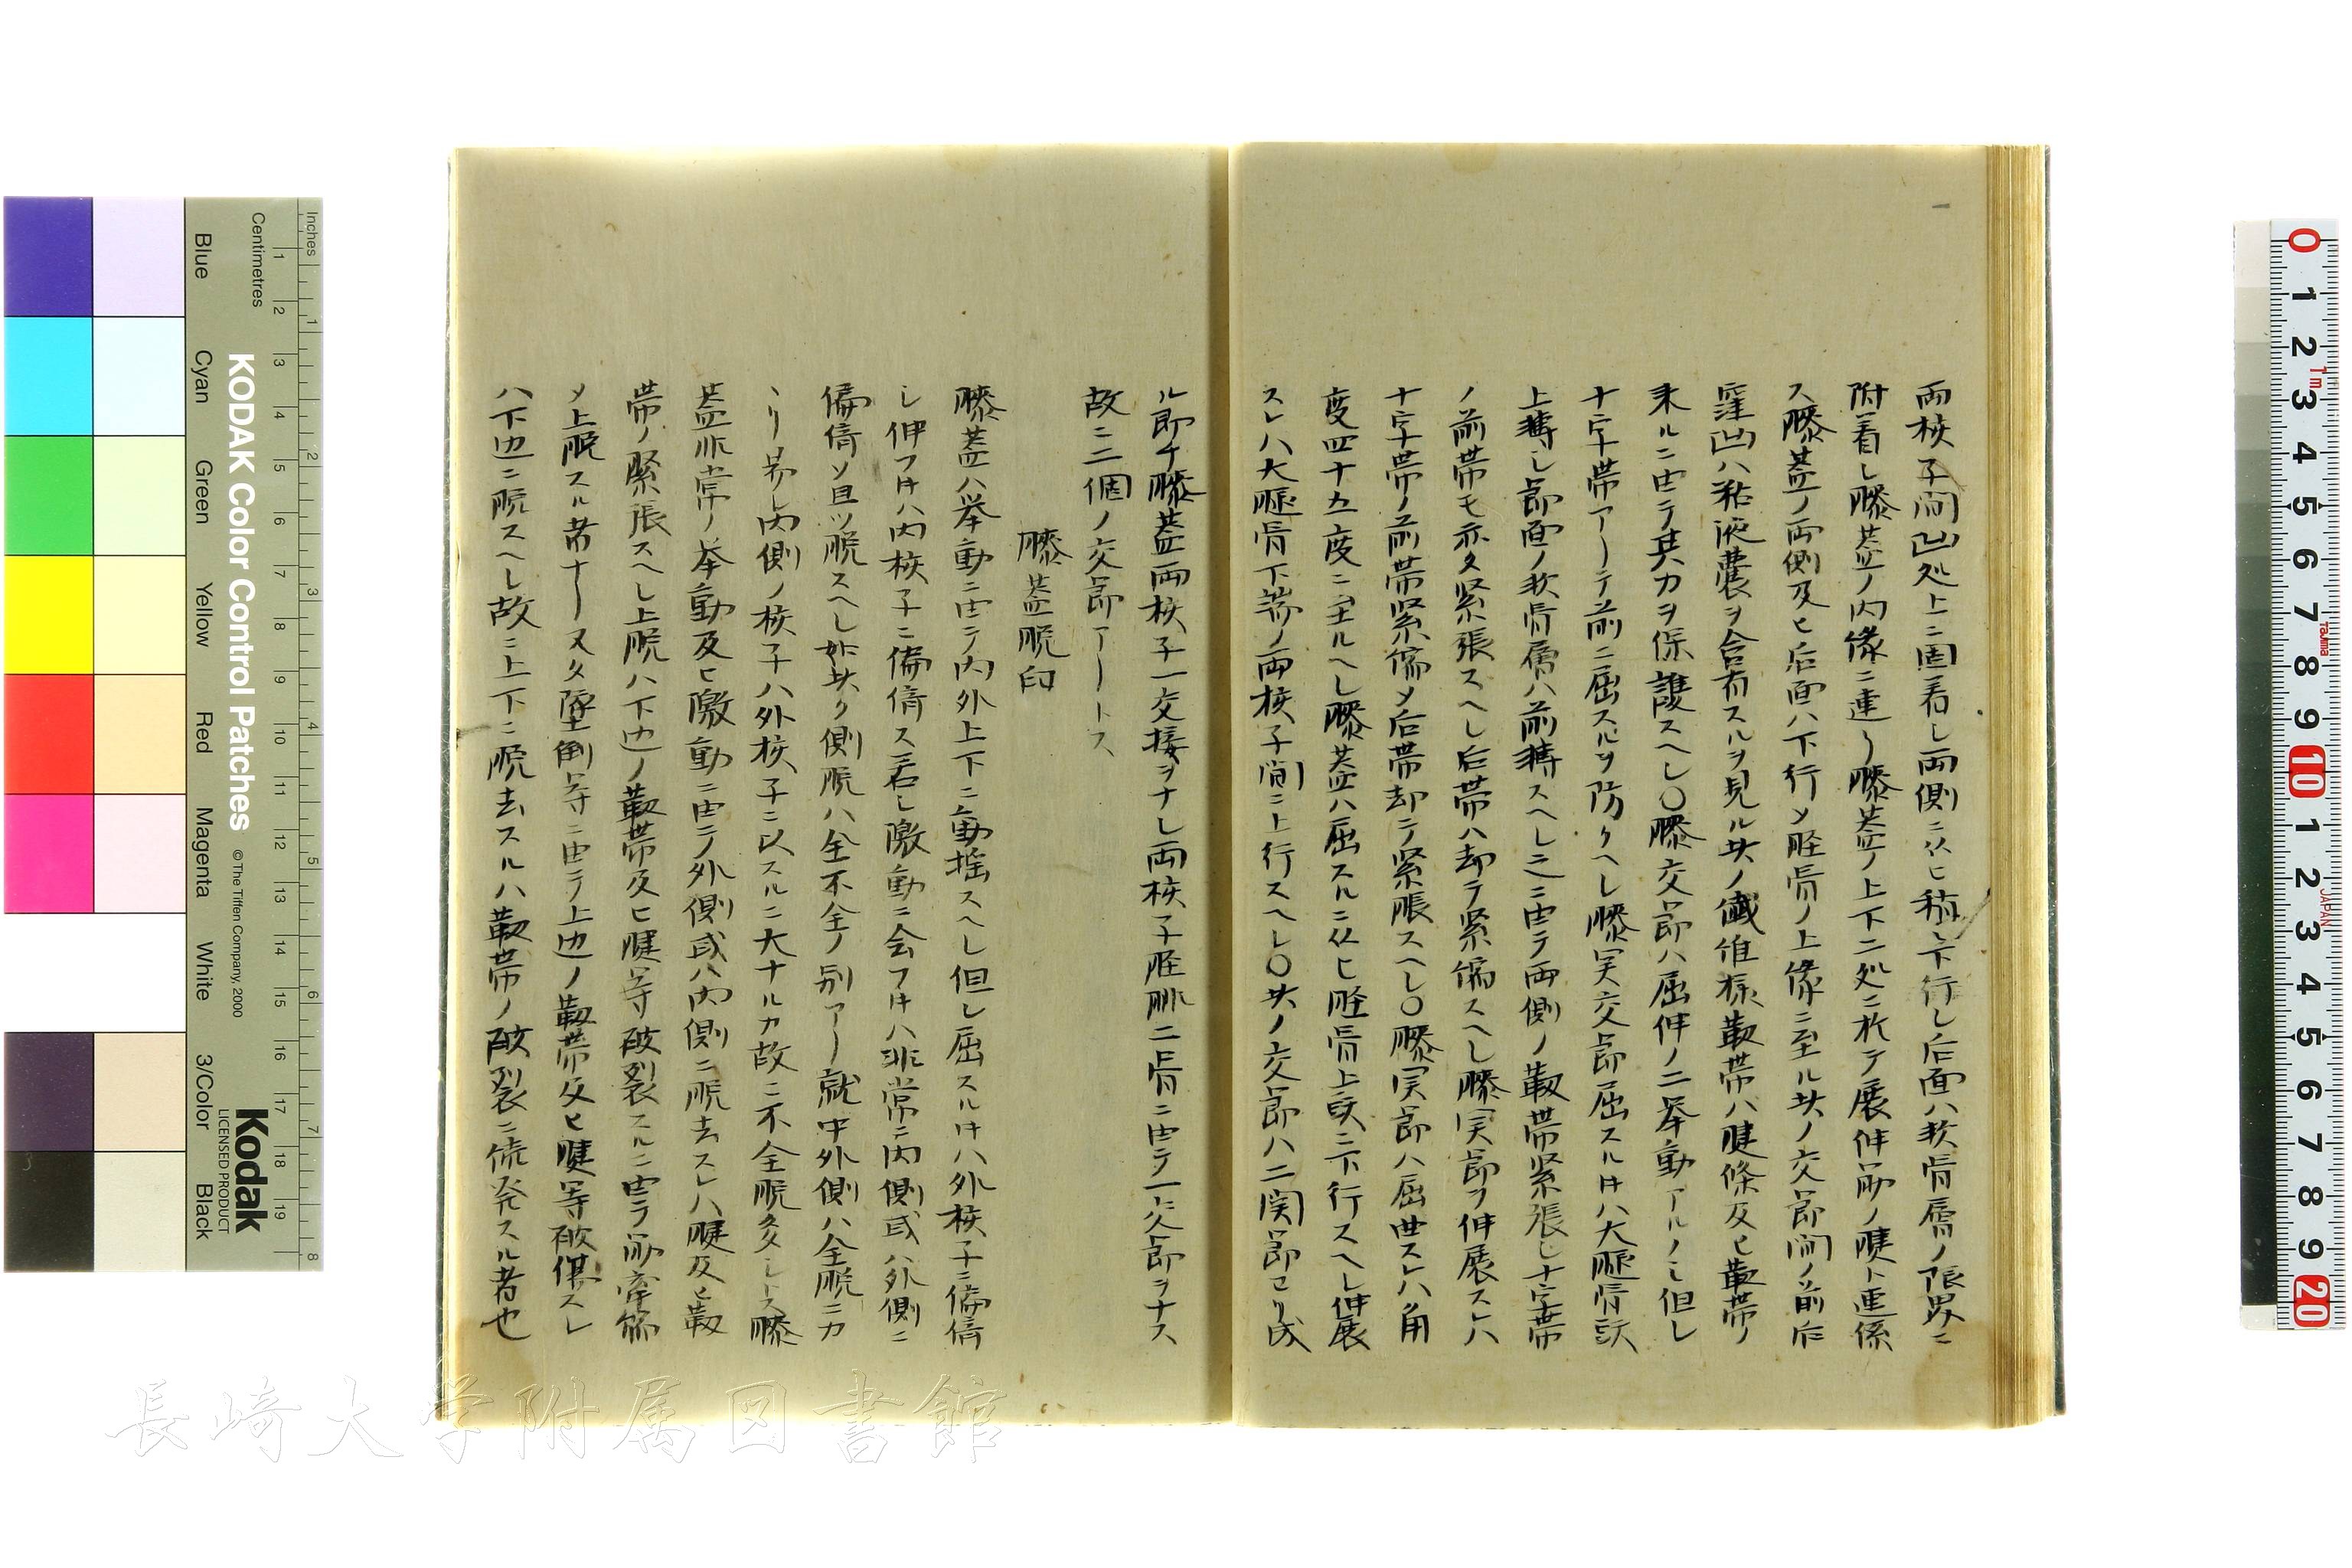 両核子間凹処上ニ固着し両側ニ从ヒ稍々下行し后面ハ軟骨層ノ限界ニ
附着し膝蓋ノ内縁ニ連リ膝蓋ノ上下二処ニ於テ展伸筋ノ腱ト連係
ス膝蓋ノ両側及ヒ后面ハ下行〆脛骨ノ上縁ニ至ル其ノ交節間ノ前后
窪凹ハ粘液嚢ヲ含有スルヲ見ル其ノ繊維様靱帯ハ腱條及ヒ靱帯ノ
来ルニ由テ其力ヲ保護スヘし〇膝交節ハ屈伸ノ二挙動アルノミ但し
十字帯アーテ前ニ屈スルヲ防クヘし膝実交節屈スル𪜈ハ大腿骨頭
上轉し節面ノ軟骨層ハ前轉スヘし之ニ由テ両側ノ靱帯緊張し十字帯
ノ前帯モ亦タ緊張スヘし后帯ハ却テ緊縮スヘし膝実節ヲ伸展スレハ
十字帯ノ前帯緊縮〆后帯却テ緊脹スヘし〇膝実節ハ屈曲スレハ角
度四十五度ニ至ルヘし膝蓋ハ屈スルニ从ヒ脛骨上頭ニ下行スヘし伸展
スレハ大腿骨下端ノ両核子間ニ上行スヘし〇其ノ交節ハ二関節ヨリ成
ル即チ膝蓋両核子一交接ヲナし両核子脛腓二骨ニ由テ一ニ交節ヲナス
故ニ二個ノ交節アートス
膝蓋脱臼
膝蓋ハ挙動ニ由テ内外上下ニ動揺スヘし但し屈スル𪜈ハ外核子ニ偏倚
し伸フ𪜈ハ内核子ニ偏倚ス若し激動ニ会フ𪜈ハ非常ニ内側或ハ外側ニ
偏倚ソ且ツ脱スヘし如此ク側脱ハ全不全ノ別アー就中外側ハ全脱ニカ
ヽリ易し内側ノ核子ハ外核子ニ以スルニ大ナルカ故ニ不全脱多しトス膝
蓋非常ノ挙動及ヒ激動ニ由テ外側或ハ内側ニ脱去スレハ腱及ヒ靱
帯ノ緊張スヘし上脱ハ下辺ノ靱帯及ヒ腱等破裂スルニ由テ筋牽縮
〆上脱スル者ナー又タ墜倒等ニ由テ上辺ノ靱帯及ヒ腱等破傷スレ
ハ下辺ニ脱スヘし故ニ上下ニ脱去スルハ靱帯ノ破裂ニ続発スル者也
KODAK Color Control Patches
© The Tiffen Company, 2000
Kodak
LICENSED PRODUCT
Inches
Centimetres
Blue
Cyan
Green
Yellow
Red
Magenta
White
3/Color
Black
長崎大学附属図書館